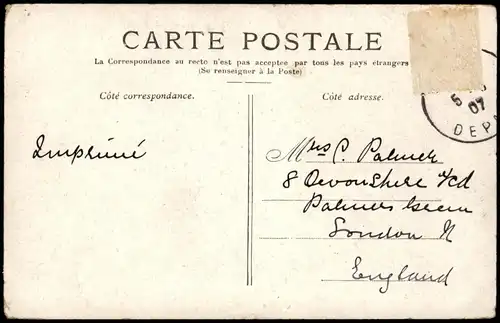 CARTE POSTALE
La Correspondance au recto n'est pas acceptée par tous les pays étrangers
(Se renseigner à la Poste)
Côté correspondance.
Côté adresse.
Imprimé
Mrs C. Palmer
8 Devonshire Rd
Palmers Green
London N
England
5
07
DEPA